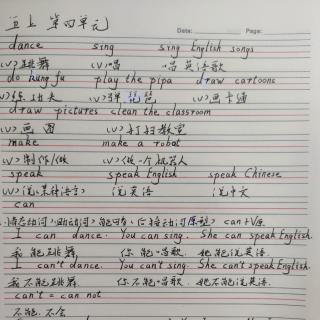 五上 第四单元
Date: Page:
dance sing sing English songs
(v) 跳舞 (v) 唱 唱英语歌
do kung fu play the pipa draw cartoons
(v) 练功夫 (v) 弹琵琶 (v) 画卡通
draw pictures clean the classroom
(v) 画图 (v) 打扫教室
make make a robot
(v) 制作/做 (v) 做一个机器人
speak speak English speak Chinese
(v) 说(某种语言) 说英语 说中文
can
情态动词(助动词) 能,可以,后接动词原型 can+V原
I can dance. You can sing. She can speak English.
我能跳舞. 你能唱歌. 她能说英语.
I can't dance. You can't sing. She can't speak English.
我不能跳舞 你不能唱歌. 她不能说英语.
can't = can not
不能,不会